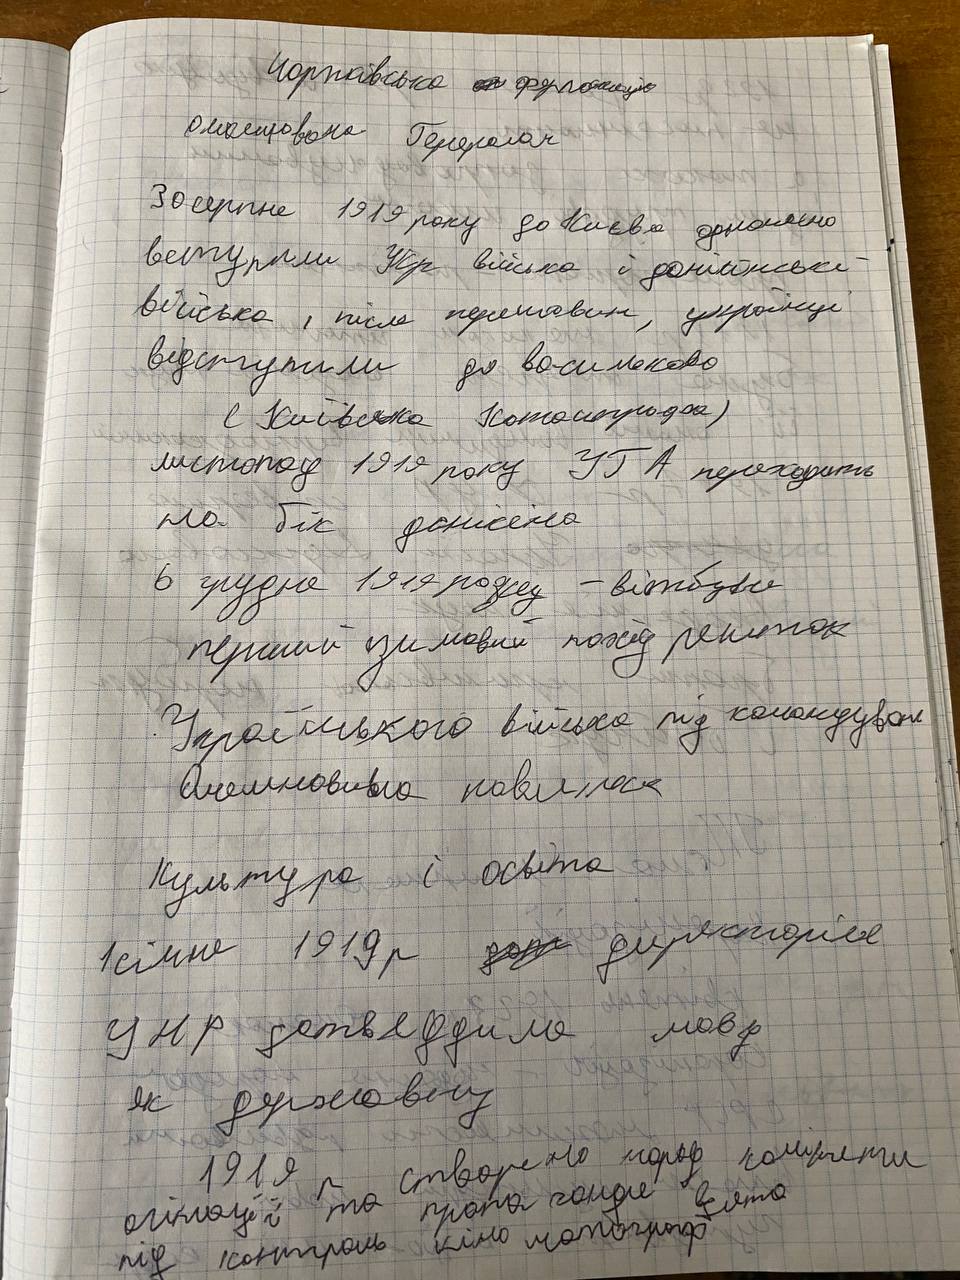 Чортківська офензива
очолювана Генералом
30 серпня 1919 року до Києва одночасно
вступили Укр війська і денікінські
війська, після перемовин, українці
відступили до василькова
(Київська Катастрофа)
листопад 1919 року УГА переходить
на бік денікіна
6 грудня 1919 року – відбувся
перший зимовий похід
Українського війська під командуван
павленка
Культура і освіта
1 січня 1919 р директорія
УНР затвердила мову
як державну
1919 р створено
агітації та пропаганди взято
під контроль кінематограф